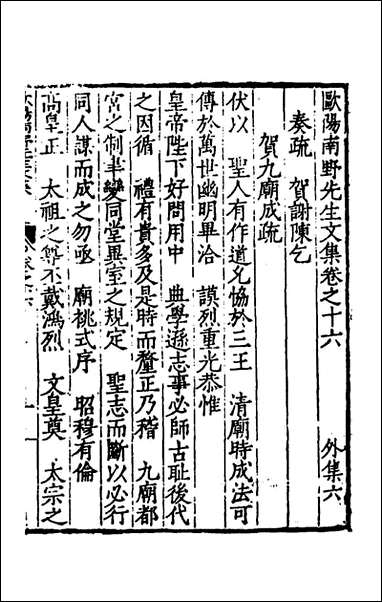 歐陽南野先生文集卷之十六 外集六
奏疏 賀謝陳乞
賀九廟成疏
伏以 聖人有作道允協於三王 清廟時成法可
傳於萬世幽明畢洽 謨烈重光恭惟
皇帝陛下好問用中 典學遜志事必師古耻後代
之因循 禮有貴多及是時而釐正乃稽 九廟都
宮之制半變同堂異室之規定 聖志而斷以必行
同人謀而成之勿亟 廟祧式序 昭穆有倫
高皇正 太祖之尊丕戴鴻烈 文皇奠 太宗之